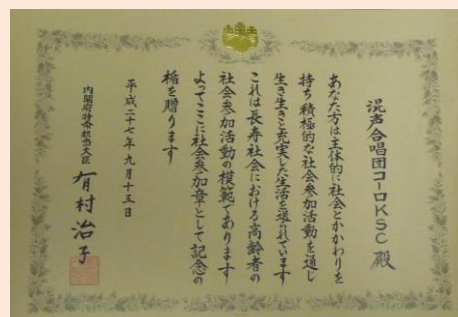 混声合唱団コーロKSC 殿
あなた方は主体的に社会とかかわりを
持ち積極的な社会参加活動を通し
生き生きと充実した生活を送られています
これは長寿社会における高齢者の
社会参加活動の模範であります
よってここに社会参加章として記念の
楯を贈ります
平成二十七年九月十五日
内閣府特命担当大臣 有村治子